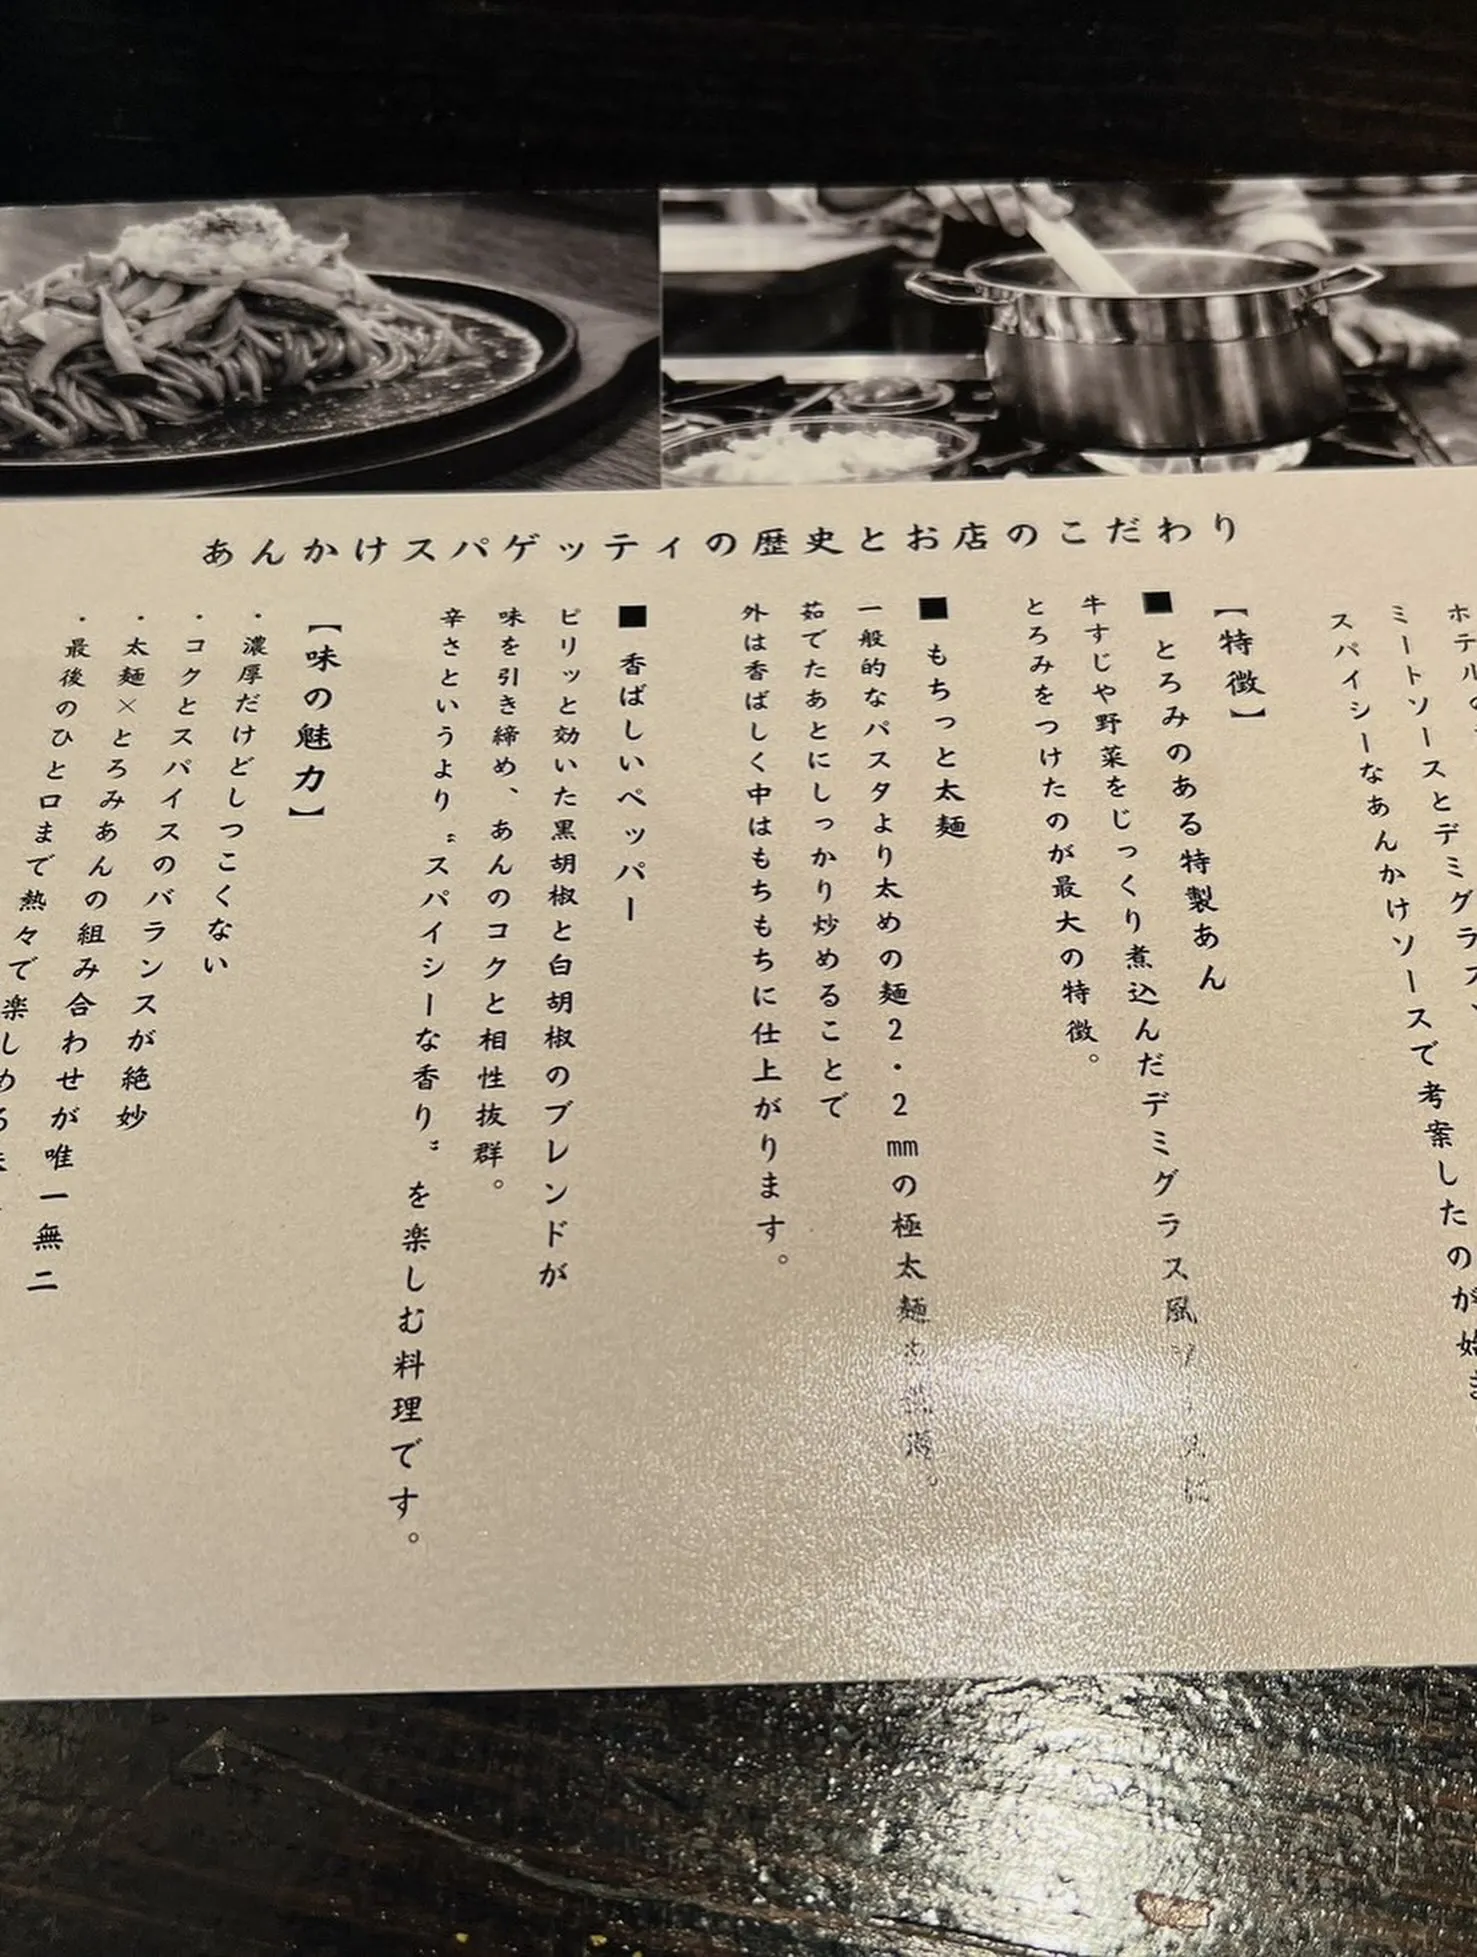 あんかけスパゲッティの歴史とお店のこだわり
ミートソースとデミグラス、
スパイシーなあんかけソースで考案したのが始
【特徴】
■とろみのある特製あん
牛すじや野菜をじっくり煮込んだデミグラス風
とろみをつけたのが最大の特徴。
■もちっと太麺
一般的なパスタより太めの麺2・2㎜の極太麺
茹でたあとにしっかり炒めることで
外は香ばしく中はもちもちに仕上がります。
■香ばしいペッパー
ピリッと効いた黒胡椒と白胡椒のブレンドが
味を引き締め、あんのコクと相性抜群。
辛さというより〝スパイシーな香り〟を楽しむ料理です。
【味の魅力】
・濃厚だけどしつこくない
・コクとスパイスのバランスが絶妙
・太麺×とろみあんの組み合わせが唯一無二
・最後のひと口まで熱々で楽しめる